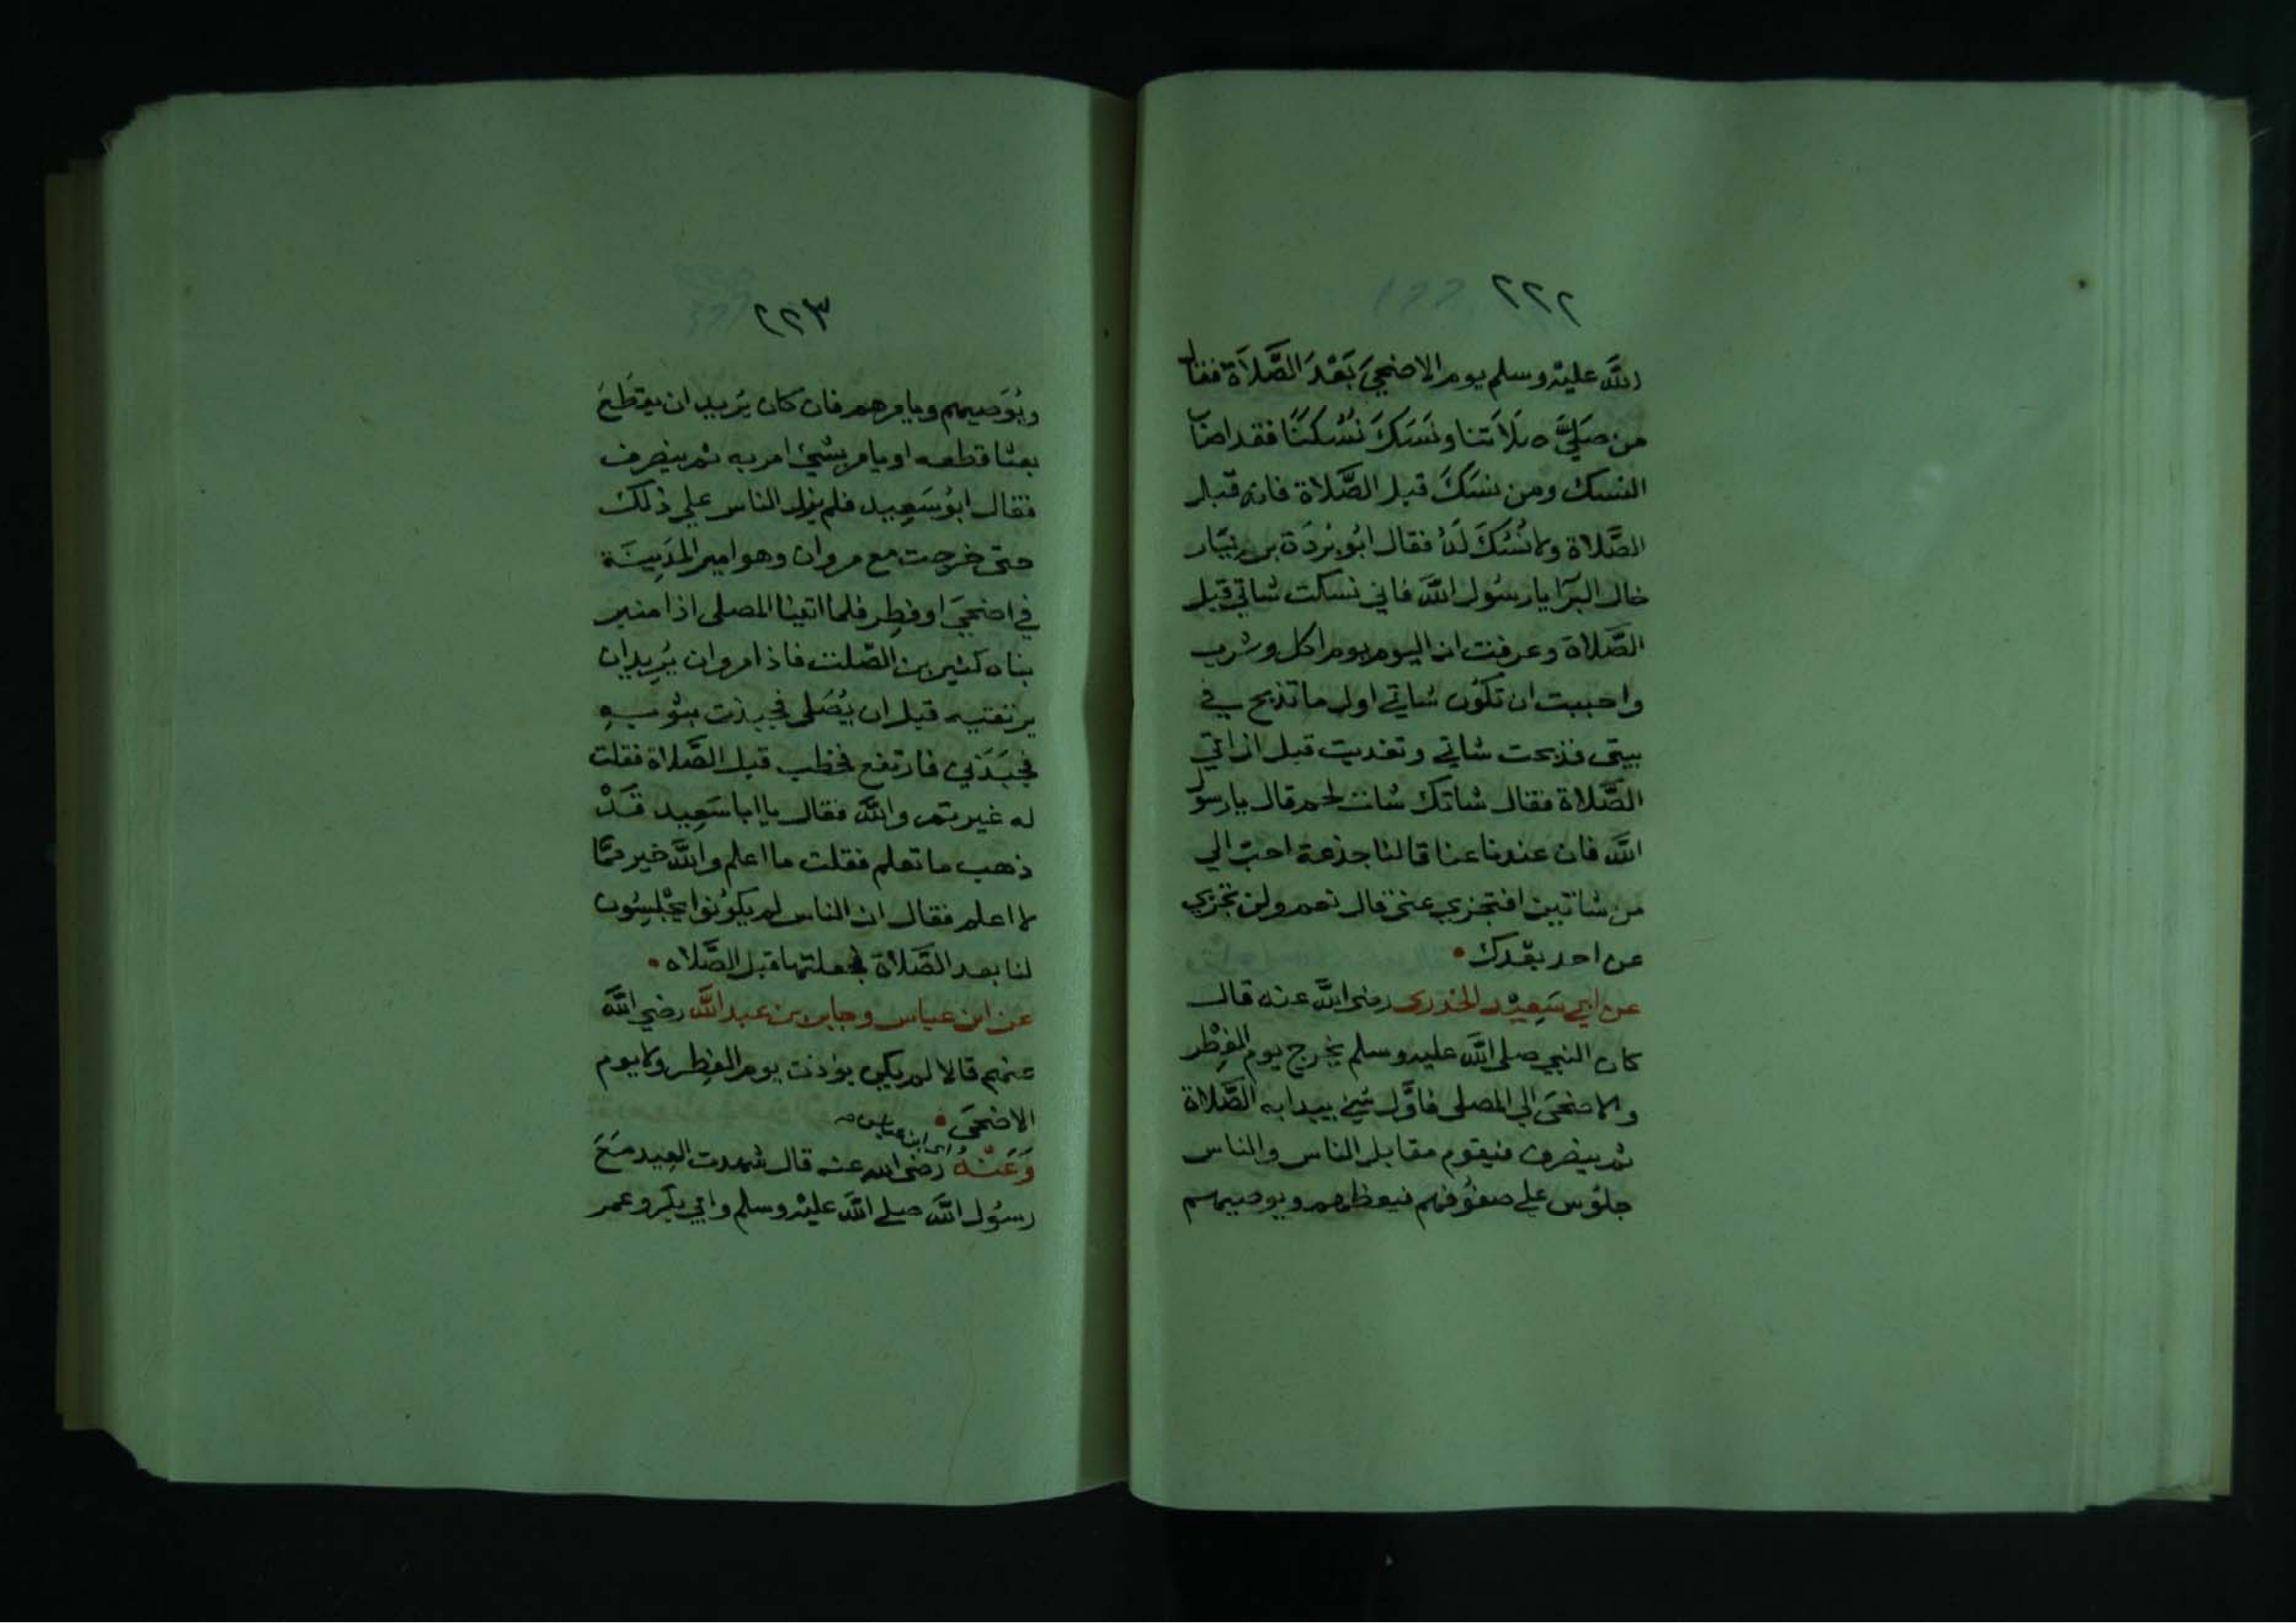 ٢٢٢
الله عليه وسلم يوم الاضحى بَعْدَ الصَّلاَة فقال
من صَلَّى صلاَتنا ونَسَكَ نُسُكَنَا فقد اصاب
النسك ومن نسَكَ قبل الصَّلاة فانه قبل
الصَّلاة ولا نُسُكَ لَهُ فقال ابُو بُردَة بن نيَار
خال البرآ يا رسُول الله فاني نسكت شاتي قبل
الصَّلاة وعرفت ان اليوم يوم اكل وشرب
واحببت ان تكُون شاتي اول ما تذبح في
بيتي فذبحت شاتي وتغديت قبل ان اتي
الصَّلاة فقال شاتك شات لحم قال يا رسول
الله فان عندنا عناقا لنا جذعة احبّ الي
من شاتين افتجزي عني قال نعم ولن تجزي
عن احد بعْدك
عن ابي سَعِيْد الخدري رضى الله عنه قال
كان النبي صلى الله عليه وسلم يخرج يوم الفِطْر
والاضحَى الي المصلى فاوَّل شئ يبدا به الصَّلاة
ثم ينصرف فيقوم مقابل الناس والناس
جلوُس على صفوُفهم فيعظهم ويوصيهم
٢٢٣
ويُوَصيهم ويامرهم فان كان يُريد ان يقطَعَ
بعثا قطعه او يامر بشئ امر به ثم ينصرف
فقال ابوُ سَعِيد فلم يزل الناس على ذلك
حتى خرجت مع مروان وهو امير المَدِينَة
في اضحىَ او فطِر فلما اتينا المصلى اذا منبر
بناه كثير بن الصّلت فاذا مروان يُريد ان
يرتقيه قبل ان يُصَلى فجبذت بثوبِهِ
فجَبَذَني فارتفع فخطب قبل الصَّلاة فقلت
له غيرتم والله فقال يا ابا سَعِيد قَدْ
ذهب ما تعلم فقلت ما اعلم والله خير ممَّا
لا اعلم فقال ان الناس لم يكوُنوا يجْلِسُون
لنا بعد الصَّلاة فجعلتها قبل الصَّلاه
عن ابن عباس وجابر بن عبد الله رضي الله
عنهم قالا لم يكن يوذن يوم الفِطر ولا يوم
الاضحَى
اى ابن عباس صه
وَعَنْهُ رضى الله عنه قال شهدت العِيد مَعَ
رسُول الله صلى الله عليْه وسلم وابي بكر وعمر